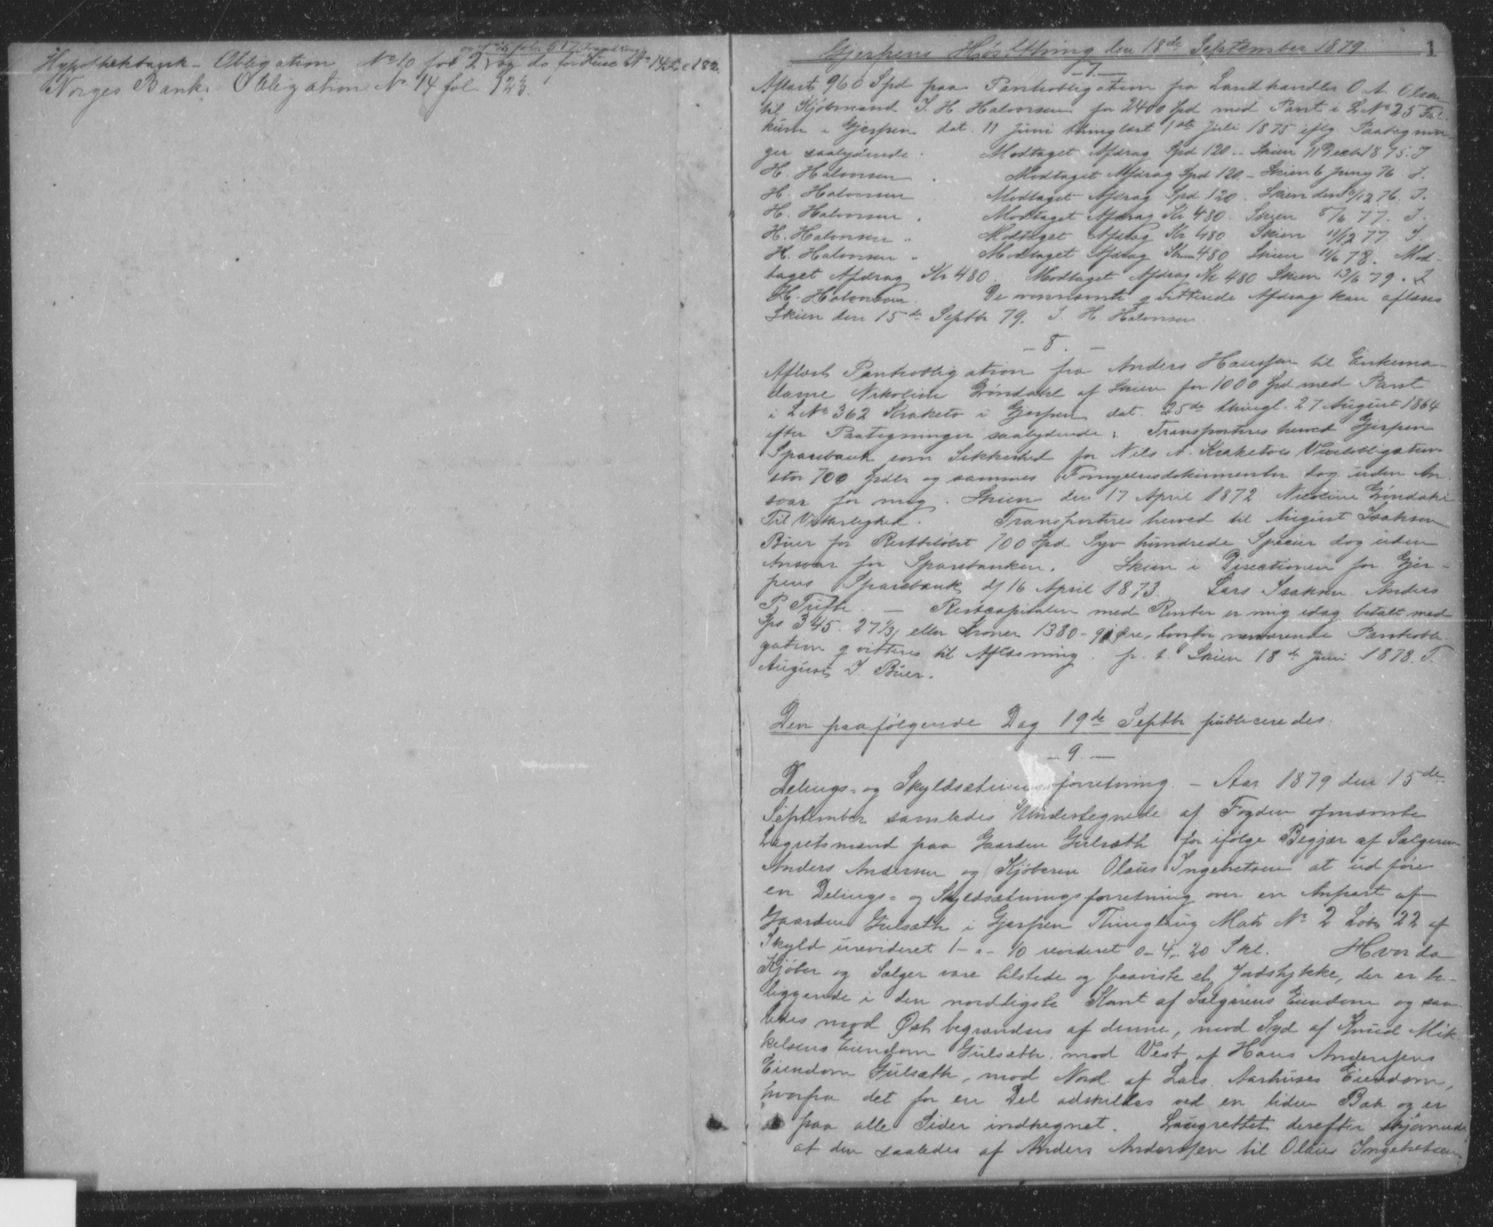 Hypothekbank - Obligation No 10 fol 2 og do
Norges Banks Obligation No 14 fol 123.
Gjerpens Høstthing den 18de September 1879. 1
-7-
Aflæst 960 Spd paa Pantobligation fra Landhandler O. A. Olsen
til Kjøbmand I. H. Halvorsen for 2400 Spd med Pant i L No 25
i Gjerpen dat. 11 Juni thinglæst 1ste Juli 1875 iflg. Paategnin
ger saalydende. Modtaget Afdrag Spd 120 .. Skien 11 Decb 1875. I
H. Halvorsen. Modtaget Afdrag Spd 120 - Skien 6 Juny 76 I.
H. Halvorsen Modtaget Afdrag Spd 120. Skien den /12 76. I.
H. Halvorsen. Modtaget Afdrag Kr 480. Skien 8/6 77. I.
H. Halvorsen .. Modtaget Afdrag Kr 480 Skien 11/12 77 I
H. Halvorsen .. Modtaget Afdrag 480 Skien 11/6 78. Mod-
taget Afdrag Kr 480. Modtaget Afdrag Kr 480 Skien 13/6 79. I
H. Halvorsen. De qvitterede Afdrag kan aflæses
Skien den 15de Septbr 79. I. H. Halvorsen
- 8. -
Aflæst Pantobligation fra Anders Hansen til Enkema-
dame Nikoline Grøndahl af Skien for 1000 Spd med Pant
i L No 362 Kraketo i Gjerpen dat. 25de thingl. 27 August 1864
efter Paategninger saalydende: Transporteres herved Gjerpen
Sparebank som Sikkerhed for Nils A. Kraketoes Vexelobligation
stor 700 Spdlr og sammes Fornyelsesdokumenter dog uden An
svar for mig. Skien den 17 April 1872 Nicoline Grøndahl
Til Vitterlighed. Transporteres herved til August Isaksen
Buer for Restbeløbet 700 Spd Syv hundrede Specier dog uden
Ansvar for Sparebanken. Skien i Directionen for Gjer-
pens Sparebank d/16 April 1873. Lars Isaksen Anders
P. Tufte. - Restcapitalen med Renter er mig idag betalt med
Sps 345. 27 1/3 eller Kroner 1380- 91 Øre, hvorfor nærværende Pantobli-
gation qvitteres til Aflæsning. p. t. Skien 18de Juni 1878. T.
August I Buer.
Den paafølgende Dag 19de Septbr publiceredes.
- 9 -
Delings- og Skyldsætningsforretning. - Aar 1879 den 15de
September samledes Undertegnede af Fogden opnævnte
Lagretsmænd paa Gaarden Gulsæth for ifølge Begjær af Sælgeren
Anders Andersen og Kjøberen Olaus Ingebretsen at udføre
en Delings- og Skyldsætningsforretning over en Anpart af
Gaarden Gulsæth i Gjerpen Thinglaug Mats No 2 Løbs 22 af
Skyld urevideret 1 - " - 10 revideret 0 - 4 - 20 Skl. Hvor da
Kjøber og Sælger vare tilstede og paaviste et Jordstykke, der er be-
liggende i den nordligste Kant af Sælgerens Eiendom og saa
ledes mod Øst begrændses af denne, mod Syd af Knud Mik
kelsens Eiendom Gulsæth. mod Vest af Hans Andersens
Eiendom Gulsæth, mod Nord af Lars Aarhuses Eiendom,
hvorfra det for en Del adskilles ved en liden Bæk og er
paa alle Sider indhegnet. Laugrettet derefter skjønnede
at den saaledes af Anders Andersen til Olaus Ingebretsen